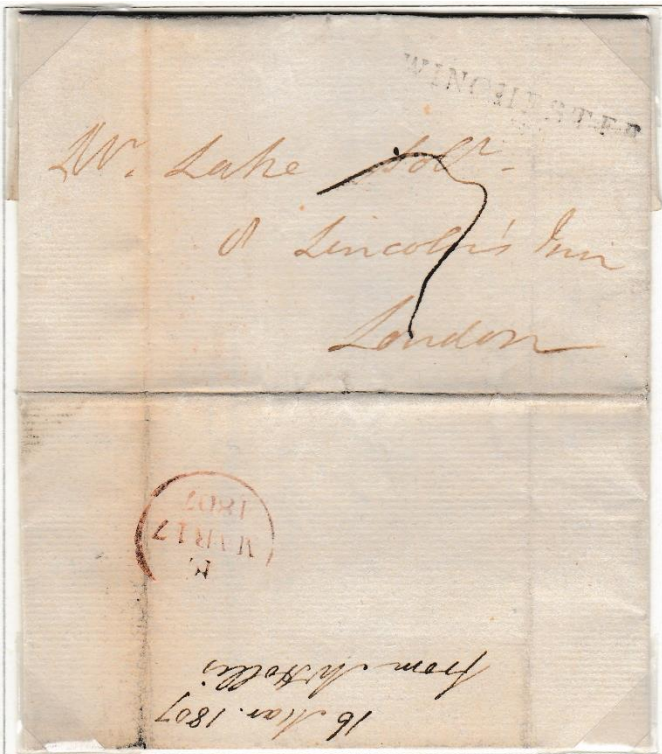 WINCHESTER
Mr. Lake Solr.
8 Lincoln's Inn
London
7
MAR 17
1807
16 Mar. 1807
from Mr Hollis